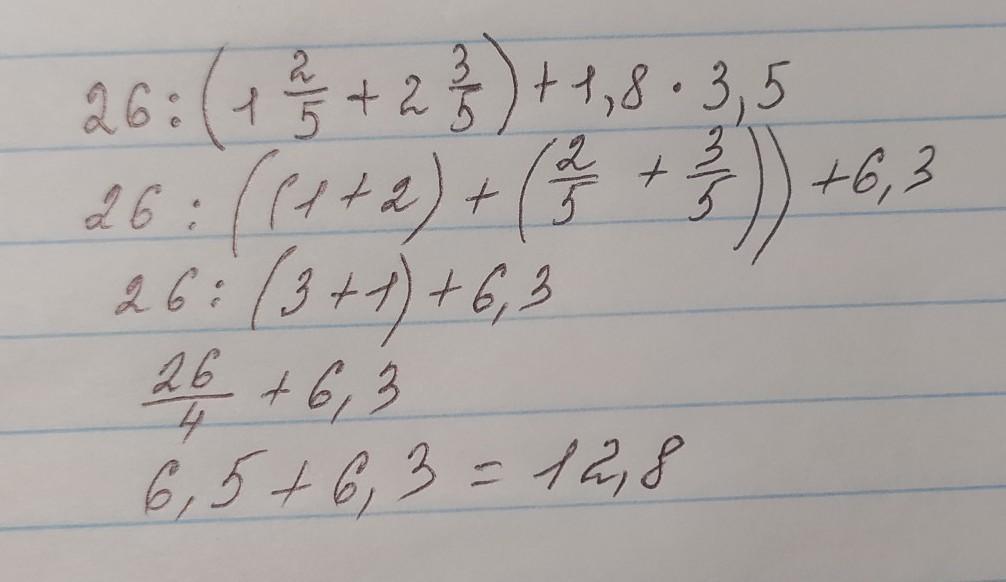 26 : (1 2/5 + 2 3/5) + 1,8 · 3,5
26 : ((1 + 2) + (2/5 + 3/5)) + 6,3
26 : (3 + 1) + 6,3
26/4 + 6,3
6,5 + 6,3 = 12,8